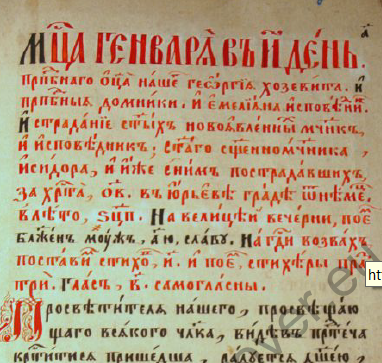 Мц҃а генварѧ въ и҃ день.
Прпⷣбнаго ѻц҃а нашеⷢ геѡргїѧ хозевита. и
прпⷣбныѧ домники. и емелїана исповѣⷣ
и страданїе ст҃ыхъ новоѧвленныⷯ мч҃нкъ,
и исповѣⷣникъ; ст҃аго сщ҃енномч҃ника,
исидора, и иже снимъ пострадавшихъ,
за хрⷭта, ѻв. въ юрьевѣ градѣ
влѣто, ѕцп. На велицѣй вечерни, поеⷨ
блаженъ моужъ, а҃ю, славꙋ. На гдⷭи возвахъ
поставиⷨ стихѡⷡ, и. и поеⷨ, стихѣры
три. Гласъ, в. самогласны.
Просвѣтителѧ нашего, просвѣщаю
щаго всѧкого чл҃ка, видѣвъ прⷣтеча
крⷭтитисѧ пришедша, радꙋетсѧ дш҃ею,
ht